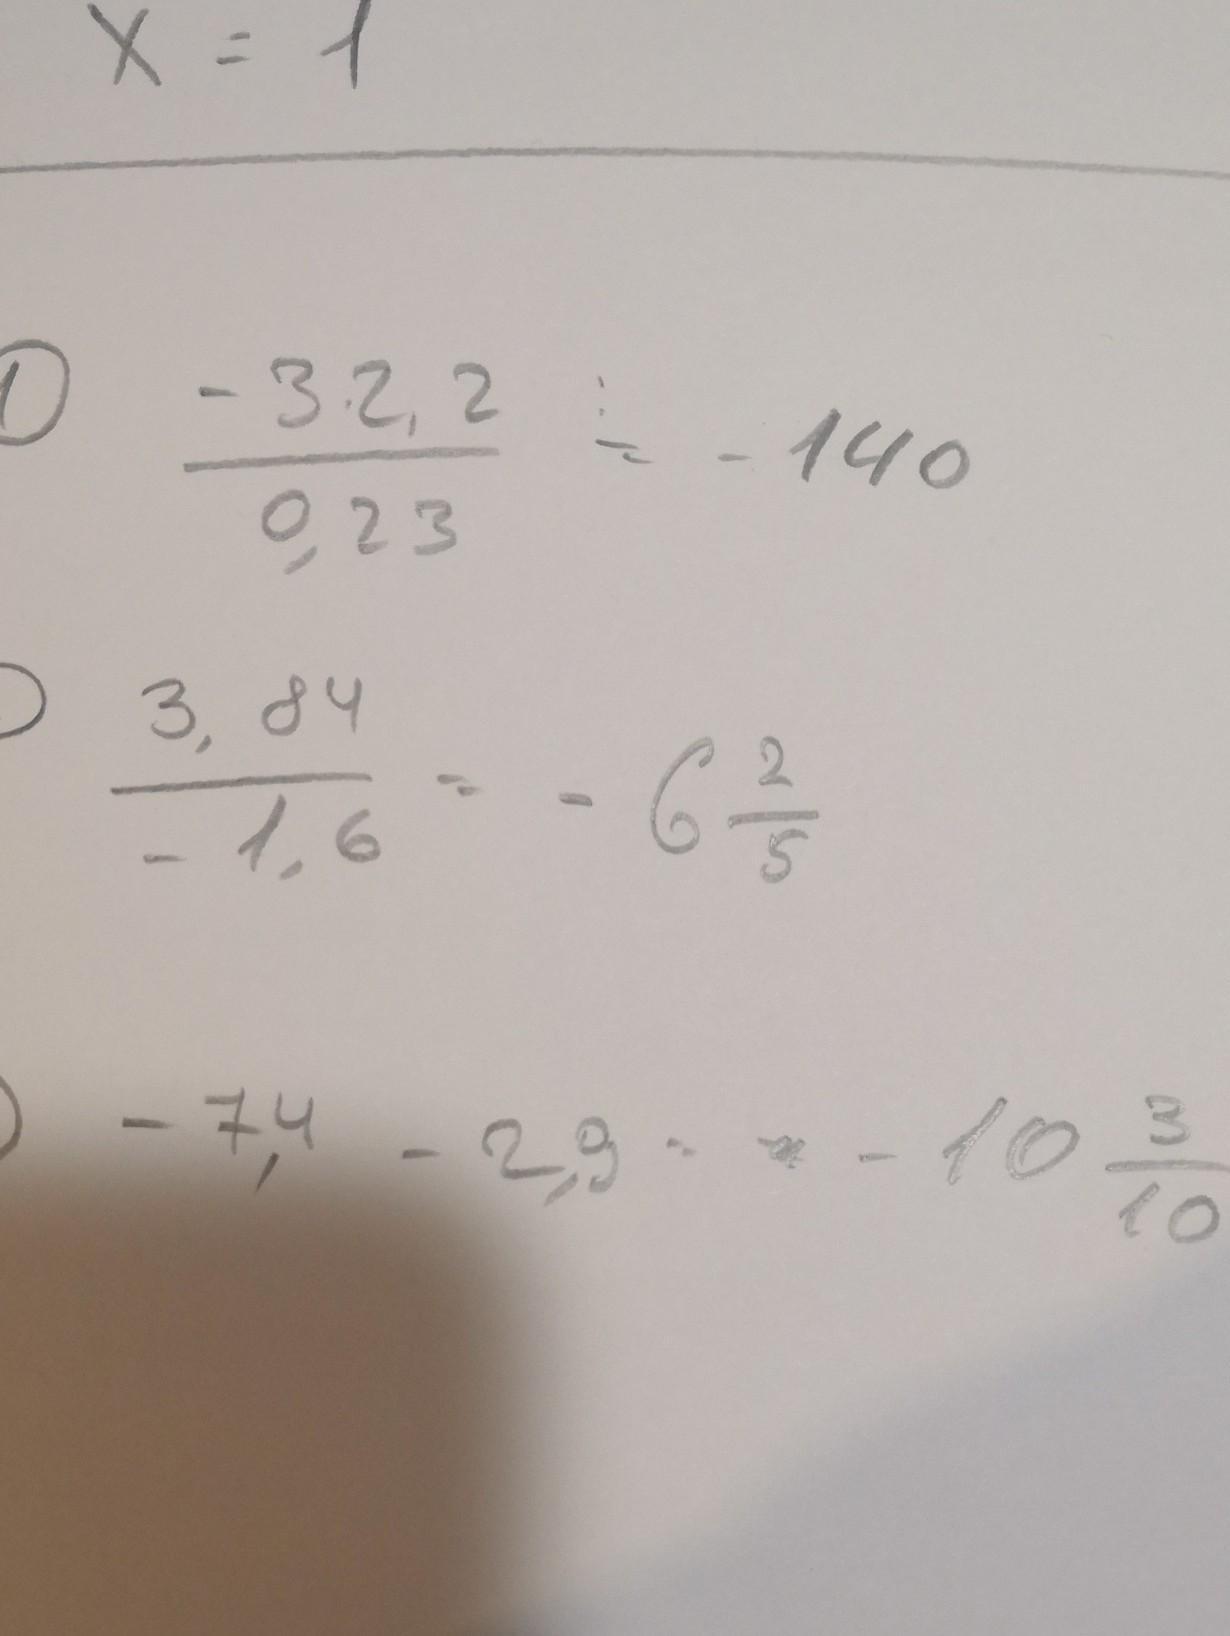 x = 1
1 -32,2 = -140
0,23
3,84 = -6 2/5
-1,6
-7,4 -2,9 = -10 3/10